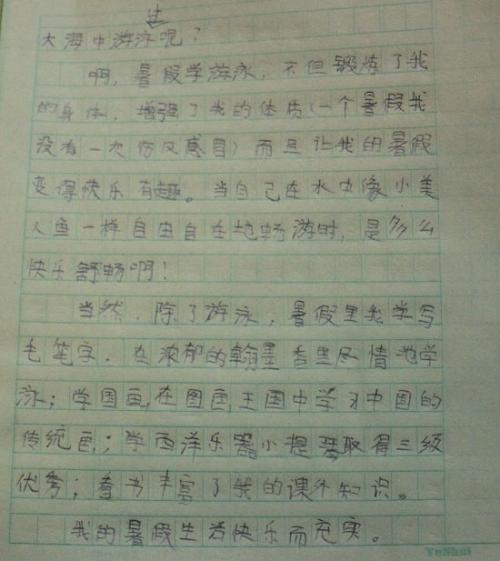 过
大海中游泳呢？
啊，暑假学游泳，不但锻炼了我
的身体，增强了我的体质（一个暑假我
没有一次伤风感冒）而且让我的暑假
变得快乐有趣。当自己在水中像小美
人鱼一样自由自在地畅游时，是多么
快乐舒畅啊！
当然，除了游泳，暑假里我学写
毛笔字，在浓郁的翰墨香里尽情地学
泳；学国画，在图画王国中学习中国的
传统画；学西洋乐器小提琴取得三级
优秀；看书丰富了我的课外知识。
我的暑假生活快乐而充实。
YuShui